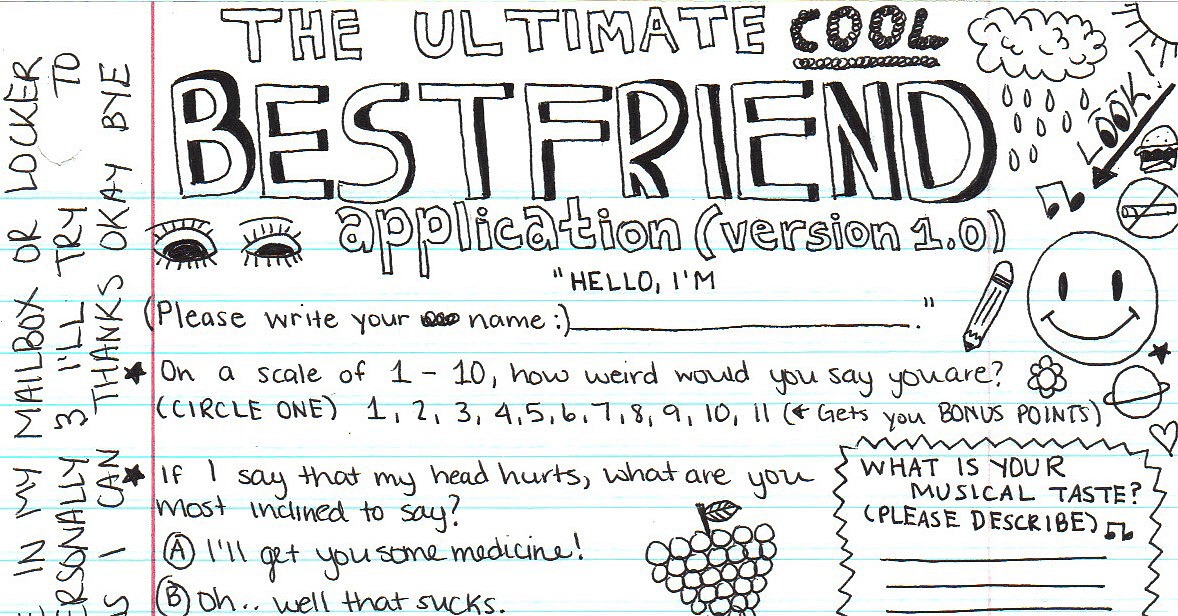 THE ULTIMATE COOL
BESTFRIEND
application (version 1.0)
LOOK!
"HELLO, I'M
(Please write your name:)____________________."
On a scale of 1 - 10, how weird would you say you are?
(CIRCLE ONE) 1, 2, 3, 4, 5, 6, 7, 8, 9, 10, 11 (← Gets you BONUS POINTS)
If I say that my head hurts, what are you
most inclined to say?
(A) I'll get you some medicine!
(B) Oh.. well that sucks.
WHAT IS YOUR
MUSICAL TASTE?
(PLEASE DESCRIBE)
IN MY MAILBOX OR LOCKER
3 I'LL TRY TO
I CAN THANKS OKAY BYE